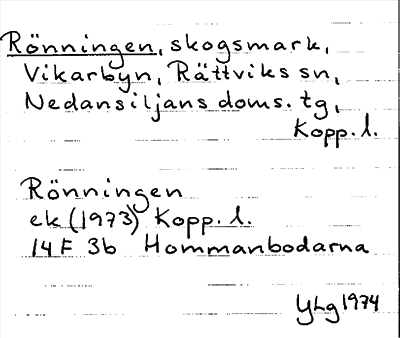 Rönningen, skogsmark,
Vikarbyn, Rättviks sn,
Nedansiljans doms. tg,
Kopp. l.
Rönningen
ek (1973) Kopp. l.
14F 3b Hommanbodarna
YLg 1974